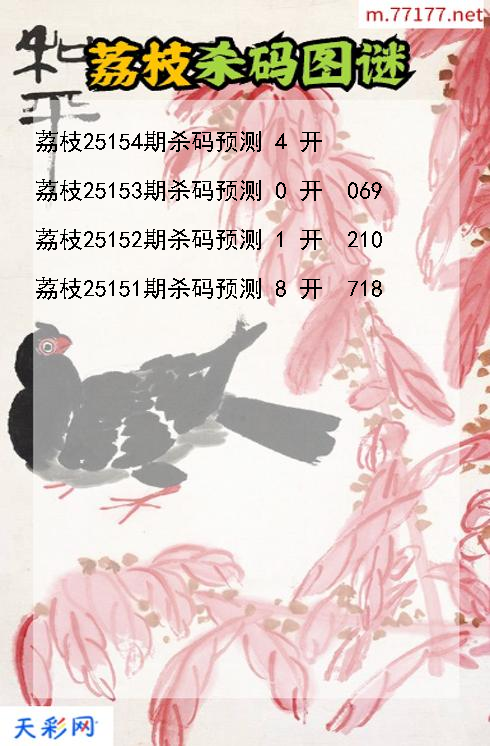 m.77177.net
和平
荔枝杀码图谜
荔枝25154期杀码预测 4 开
荔枝25153期杀码预测 0 开 069
荔枝25152期杀码预测 1 开 210
荔枝25151期杀码预测 8 开 718
天彩网